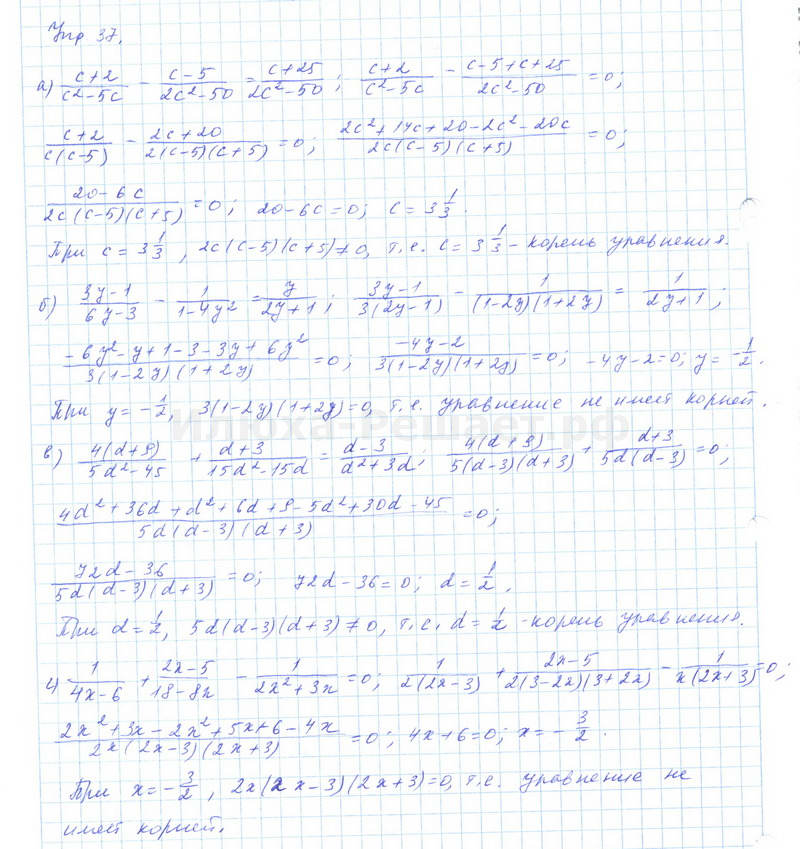 Упр 37.
а) (c+2)/(c²-5c) - (c-5)/(2c²-50) = (c+25)/(2c²-50); (c+2)/(c²-5c) - (c-5+c+25)/(2c²-50) = 0;
(c+2)/(c(c-5)) - (2c+20)/(2(c-5)(c+5)) = 0; (2c²+14c+20-2c²-20c)/(2c(c-5)(c+5)) = 0;
(20-6c)/(2c(c-5)(c+5)) = 0; 20-6c=0; c=3 1/3.
При c=3 1/3, 2c(c-5)(c+5)≠0, т.е. c=3 1/3 - корень уравнения.
б) (3y-1)/(6y-3) - 1/(1-4y²) = y/(2y+1); (3y-1)/(3(2y-1)) - 1/((1-2y)(1+2y)) = 1/(2y+1);
(-6y²-y+1-3-3y+6y²)/(3(1-2y)(1+2y)) = 0; (-4y-2)/(3(1-2y)(1+2y)) = 0; -4y-2=0; y=-1/2.
При y=-1/2, 3(1-2y)(1+2y)=0, т.е. уравнение не имеет корней.
Илюха-Решает.рф
в) (4(d+9))/(5d²-45) + (d+3)/(15d²-15d) = (d-3)/(d²+3d); (4(d+9))/(5(d-3)(d+3)) + (d+3)/(5d(d-3)) = 0;
(4d²+36d+d²+6d+9-5d²+30d-45)/(5d(d-3)(d+3)) = 0;
(72d-36)/(5d(d-3)(d+3)) = 0; 72d-36=0; d=1/2.
При d=1/2, 5d(d-3)(d+3)≠0, т.е. d=1/2 - корень уравнения.
г) 1/(4x-6) + (2x-5)/(18-8x) - 1/(2x²+3x) = 0; 1/(2(2x-3)) + (2x-5)/(2(3-2x)(3+2x)) - 1/(x(2x+3)) = 0;
(2x²+3x-2x²+5x+6-4x)/(2x(2x-3)(2x+3)) = 0; 4x+6=0; x=-3/2.
При x=-3/2, 2x(2x-3)(2x+3)=0, т.е. уравнение не
имеет корней.